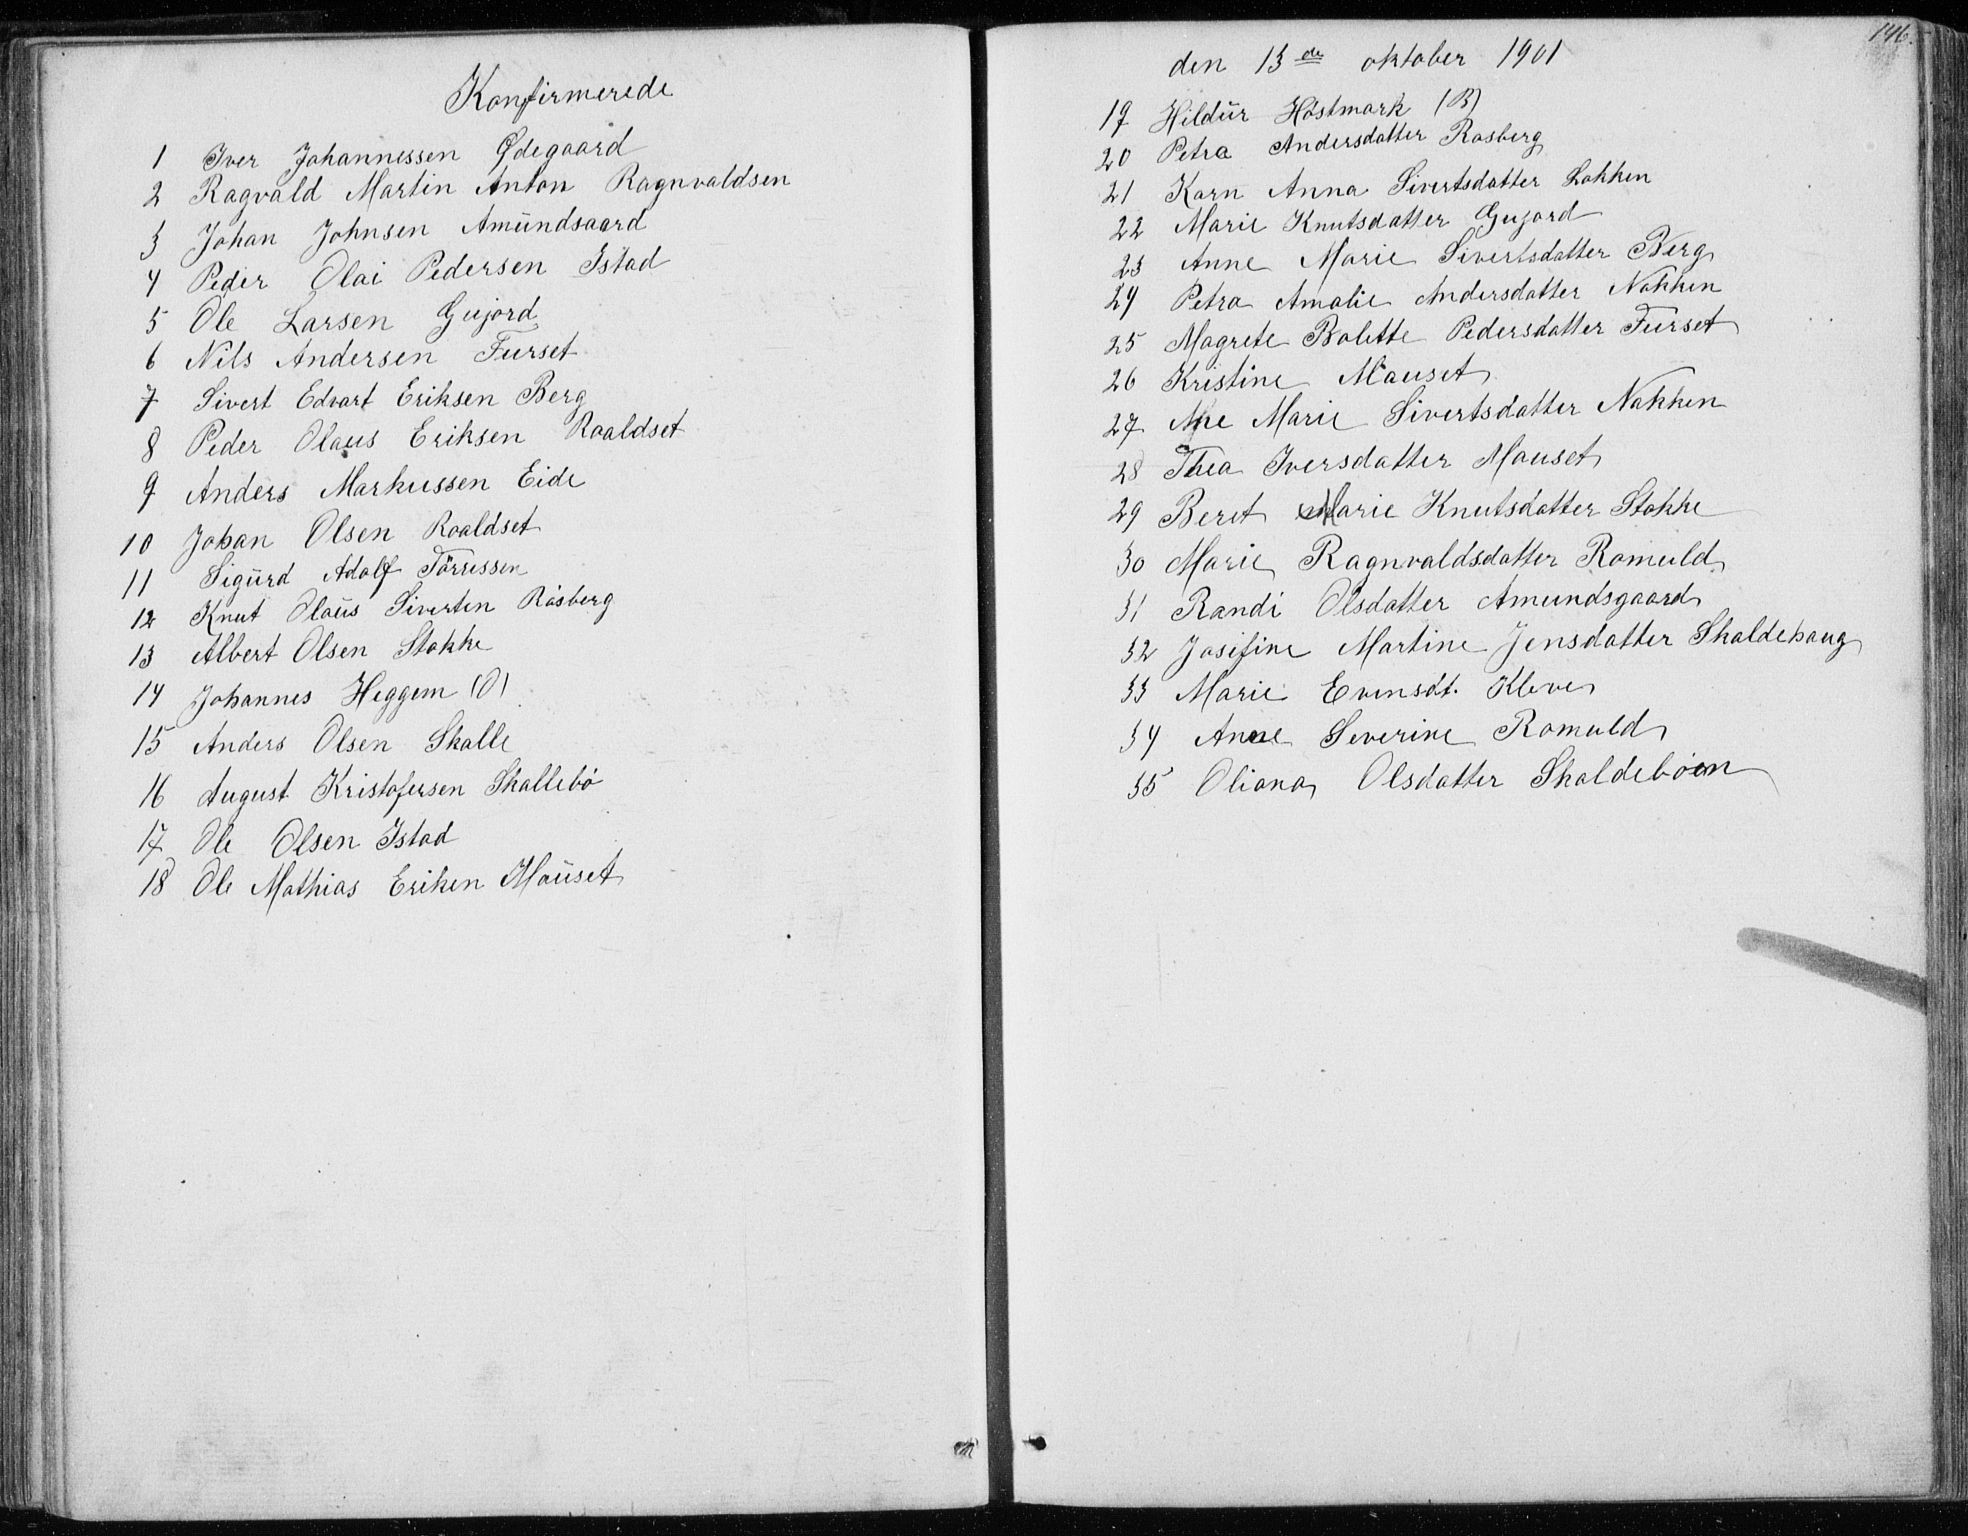 Konfirmerede
1 Iver Johannessen Ødegaard
2 Ragvald Martin Anton Ragnvaldsen
3 Johan Johnsen Amundsaard
4 Peder Olai Pedersen Istad
5 Ole Larsen Gujord
6 Nils Andersen Furset
7 Sivert Edvart Eriksen Berg
8 Peder Olaus Eriksen Roaldset
9 Anders Markussen Eide
10 Johan Olsen Roaldset
11 Sigurd Adolf Törressen
12 Knut Olaus Siverten Råsberg
13 Albert Olsen Stokke
14 Johannes Heggem (O)
15 Anders Olsen Skalle
16 August Kristofersen Skallebö
17 Ole Olsen Istad
18 Ole Mathias Eriken Mauset
146.
den 13de oktober 1901
19 Hildur Höstmark (B)
20 Petra Andersdatter Rosberg
21 Karn Anna Sivertsdatter Lokken
22 Marie Knutsdatter Gujord
23 Anne Marie Sivertsdatter Berg
24 Petra Amalie Andersdatter Nakken
25 Magrete Bolette Pedersdatter Furset
26 Kristine Mauset
27 Ane Marie Sivertsdatter Nakken
28 Thea Iversdatter Mauset
29 Beret Marie Knutsdatter Stokke
30 Marie Ragnvaldsdatter Romuld
31 Randi Olsdatter Amundsgaard
32 Josifine Martine Jensdatter Skaldehaug
33 Marie Evensdt. Kleve
34 Anne Severine Romuld
35 Oliana Olsdatter Skaldeböen